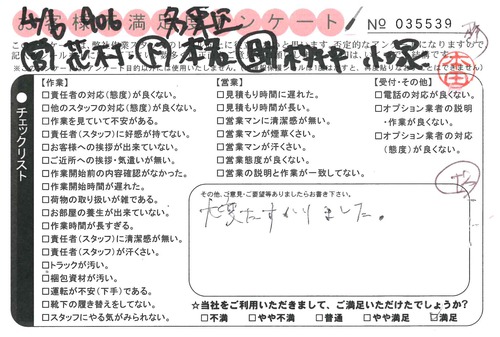 4/6 A06 名東区
お客様満足度アンケート
No 035539
チェックリスト
【作業】
□責任者の対応(態度)が良くない。
□他のスタッフの対応(態度)が良くない。
□作業を見ていて不安がある。
□責任者(スタッフ)に好感が持てない。
□お客様への挨拶が出来ていない。
□ご近所への挨拶・気遣いが無い。
□作業開始前の内容確認がなかった。
□作業開始時間が遅れた。
□荷物の取り扱いが雑である。
□お部屋の養生が出来ていない。
□作業時間が長すぎる。
□責任者(スタッフ)に清潔感が無い。
□責任者(スタッフ)が汗くさい。
□トラックが汚い。
□梱包資材が汚い。
□運転が不安(下手)である。
□靴下の履き替えをしてない。
□スタッフにやる気がみられない。
【営業】
□見積もり時間に遅れた。
□見積もり時間が長い。
□営業マンに清潔感が無い。
□営業マンが煙草くさい。
□営業マンが汗くさい。
□営業態度が良くない。
□営業の説明と作業が一致してない。
【受付・その他】
□電話の対応が良くない。
□オプション業者の説明
・作業が良くない。
□オプション業者の対応
(態度)が良くない。
その他、ご意見・ご要望等ありましたらお書き下さい。
大変たすかりました。
☆当社をご利用いただきまして、ご満足いただけたでしょうか?
□不満 □やや不満 □普通 □やや満足 ☑満足